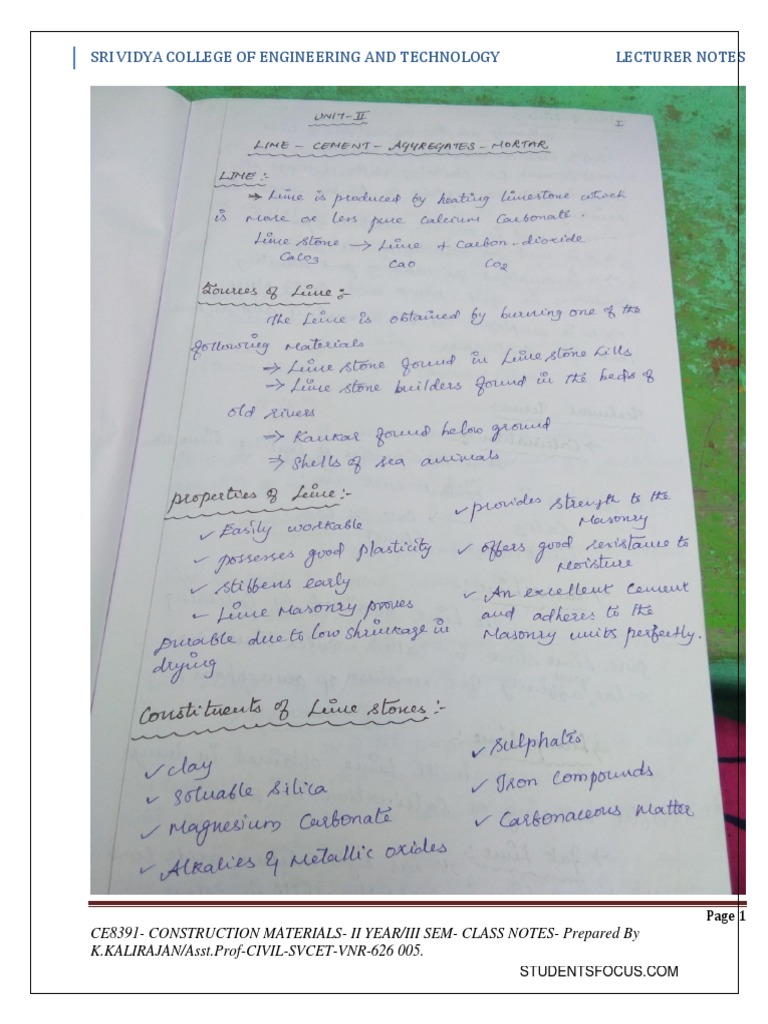 SRI VIDYA COLLEGE OF ENGINEERING AND TECHNOLOGY LECTURER NOTES
UNIT-II
I
LIME - CEMENT - AGGREGATES - MORTAR
LIME :-
→ Lime is produced by heating limestone which
is more or less pure Calcium Carbonate.
Lime stone → Lime + Carbon-dioxide
CaCO3 CaO CO2
Sources of Lime :-
The Lime is obtained by burning one of the
following Materials
→ Lime stone found in Lime stone hills
→ Lime stone builders found in the beds of
old rivers
→ Kankar found below ground
→ Shells of sea animals
Properties of Lime :-
✓ Easily workable
✓ possesses good plasticity
✓ stiffens early
✓ Lime Masonry proves
Durable due to low shrinkage in
drying
✓ provides strength to the
Masonry
✓ offers good resistance to
Moisture
✓ An excellent Cement
and adheres to the
Masonry units perfectly.
Constituents of Lime stones :-
✓ clay
✓ Soluable Silica
✓ Magnesium Carbonate
✓ Alkalies & Metallic oxides
✓ Sulphates
✓ Iron Compounds
✓ Carbonaceous Matter
Page 1
CE8391- CONSTRUCTION MATERIALS- II YEAR/III SEM- CLASS NOTES- Prepared By
K.KALIRAJAN/Asst.Prof-CIVIL-SVCET-VNR-626 005.
STUDENTSFOCUS.COM